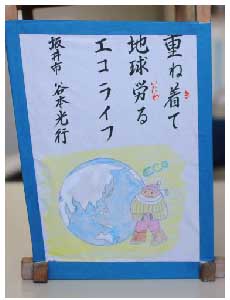 重ね着て
地球労る
エコライフ
坂井市 谷本光行